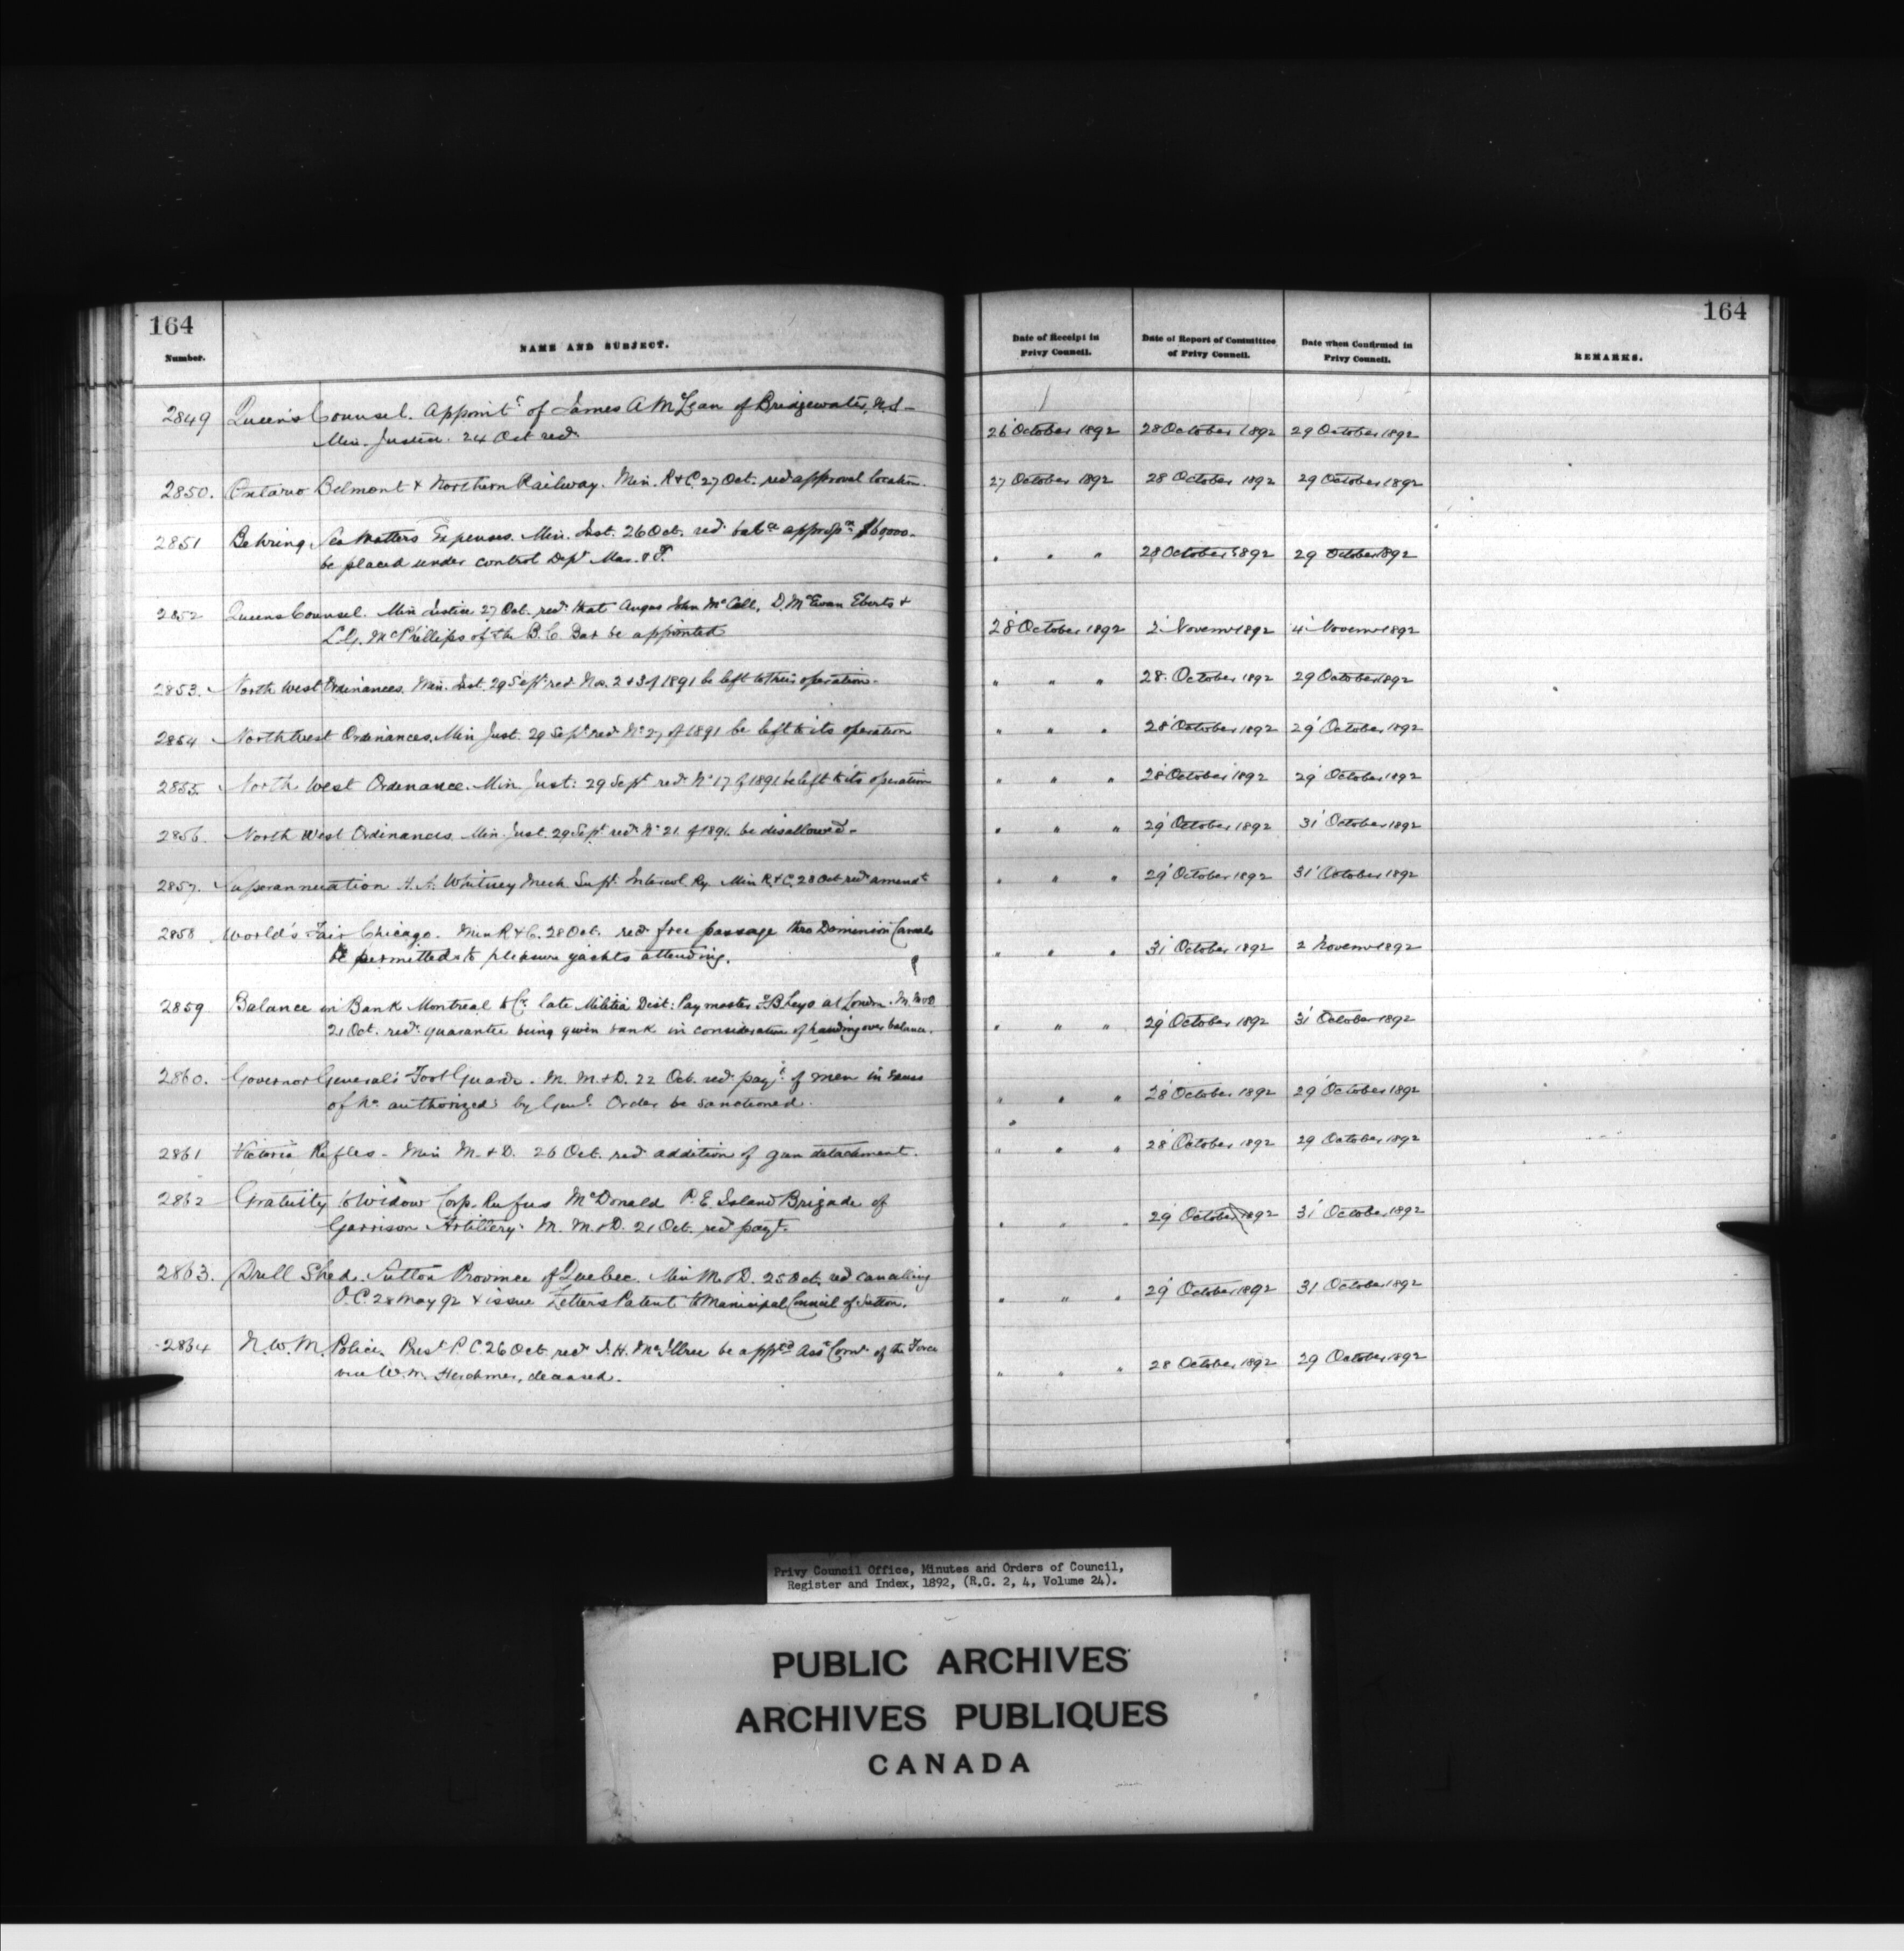 164
164
Number.
NAME AND SUBJECT.
Date of Receipt in Privy Council.
Date of Report of Committee of Privy Council.
Date when Confirmed in Privy Council.
REMARKS.
2849 Queen's Counsel. Appoint.t of James A McLean of Bridgewater, N.S-
Min. Justice. 24 Oct recd. 26 October 1892 28 October 1892 29 October 1892
2850. Ontario Belmont & Northern Railway. Min. R&C. 27 Oct. recd approval location. 27 October 1892 28 October 1892 29 October 1892
2851 Behring Sea Matters Expenses. Min. Just. 26 Oct. recd approp.n
be placed under control Dept Mar. & F. " " " 28 October 1892 29 October 1892
2852 Queens Counsel. Min Justice 27 Oct. recd that Angus John McColl, D. McEwan Eberts &
L.G. McPhillips of the B.C. Bar be appointed 28 October 1892 2 Novemr 1892 4 Novemr 1892
2853. North West Ordinances. Min. Just. 29 Sept recd Nos. 2 & 3 of 1891 be left to their operation. " " " 28 October 1892 29 October 1892
2854 North West Ordinances. Min Just. 29 Sept recd No 27 of 1891 be left to its operation " " " 28 October 1892 29 October 1892
2855. North West Ordinance. Min. Just: 29 Sept recd No 17 of 1891 be left to its operation " " " 28 October 1892 29 October 1892
2856. North West Ordinances. Min. Just. 29 Sept recd No 21 of 1891 be disallowed- " " " 29 October 1892 31 October 1892
2857. Superannuation H.A. Whitney Mech Supt. Intercol Ry. Min R&C. 28 Oct recd amendt " " " 29 October 1892 31 October 1892
2858. World's Fair Chicago. Min R&C. 28 Oct. recd free passage thro Dominion Canals
be permitted to pleasure yachts attending. " " " 31 October 1892 2 Novemr 1892
2859 Balance in Bank Montreal to Cr. late Militia Dist: Paymaster Leys at London. M. M&D
21 Oct. recd guarantee being given bank in consideration of handing over balance. " " " 29 October 1892 31 October 1892
2860. Governor General's Foot Guards. M. M.&D. 22 Oct. recd payt. of men in excess
of No. authorized by Genl. Order be sanctioned. " " " 28 October 1892 29 October 1892
2861 Victoria Rifles - Min M.&D. 26 Oct. recd addition of gun detachment. " " " 28 October 1892 29 October 1892
2862 Gratuity to Widow Corp. Rufus McDonald P.E. Island Brigade of
Garrison Artillery. M. M.&D. 21 Oct. recd payt. " " " 29 October 1892 31 October 1892
2863. Drill Shed. Sutton Province of Quebec. Min M.&D. 25 Oct. recd cancelling
O.C. 28 May 92 & issue Letters Patent to Municipal Council of Sutton. " " " 29 October 1892 31 October 1892
2864 N.W.M. Police. Prest P.C. 26 Oct recd J.H. McIllree be apptd Asst Comr. of the Force
vice W.M. Herchmer, deceased. " " " 28 October 1892 29 October 1892
Privy Council Office, Minutes and Orders of Council,
Register and Index, 1892, (R.G. 2, 4, Volume 24).
PUBLIC ARCHIVES
ARCHIVES PUBLIQUES
CANADA